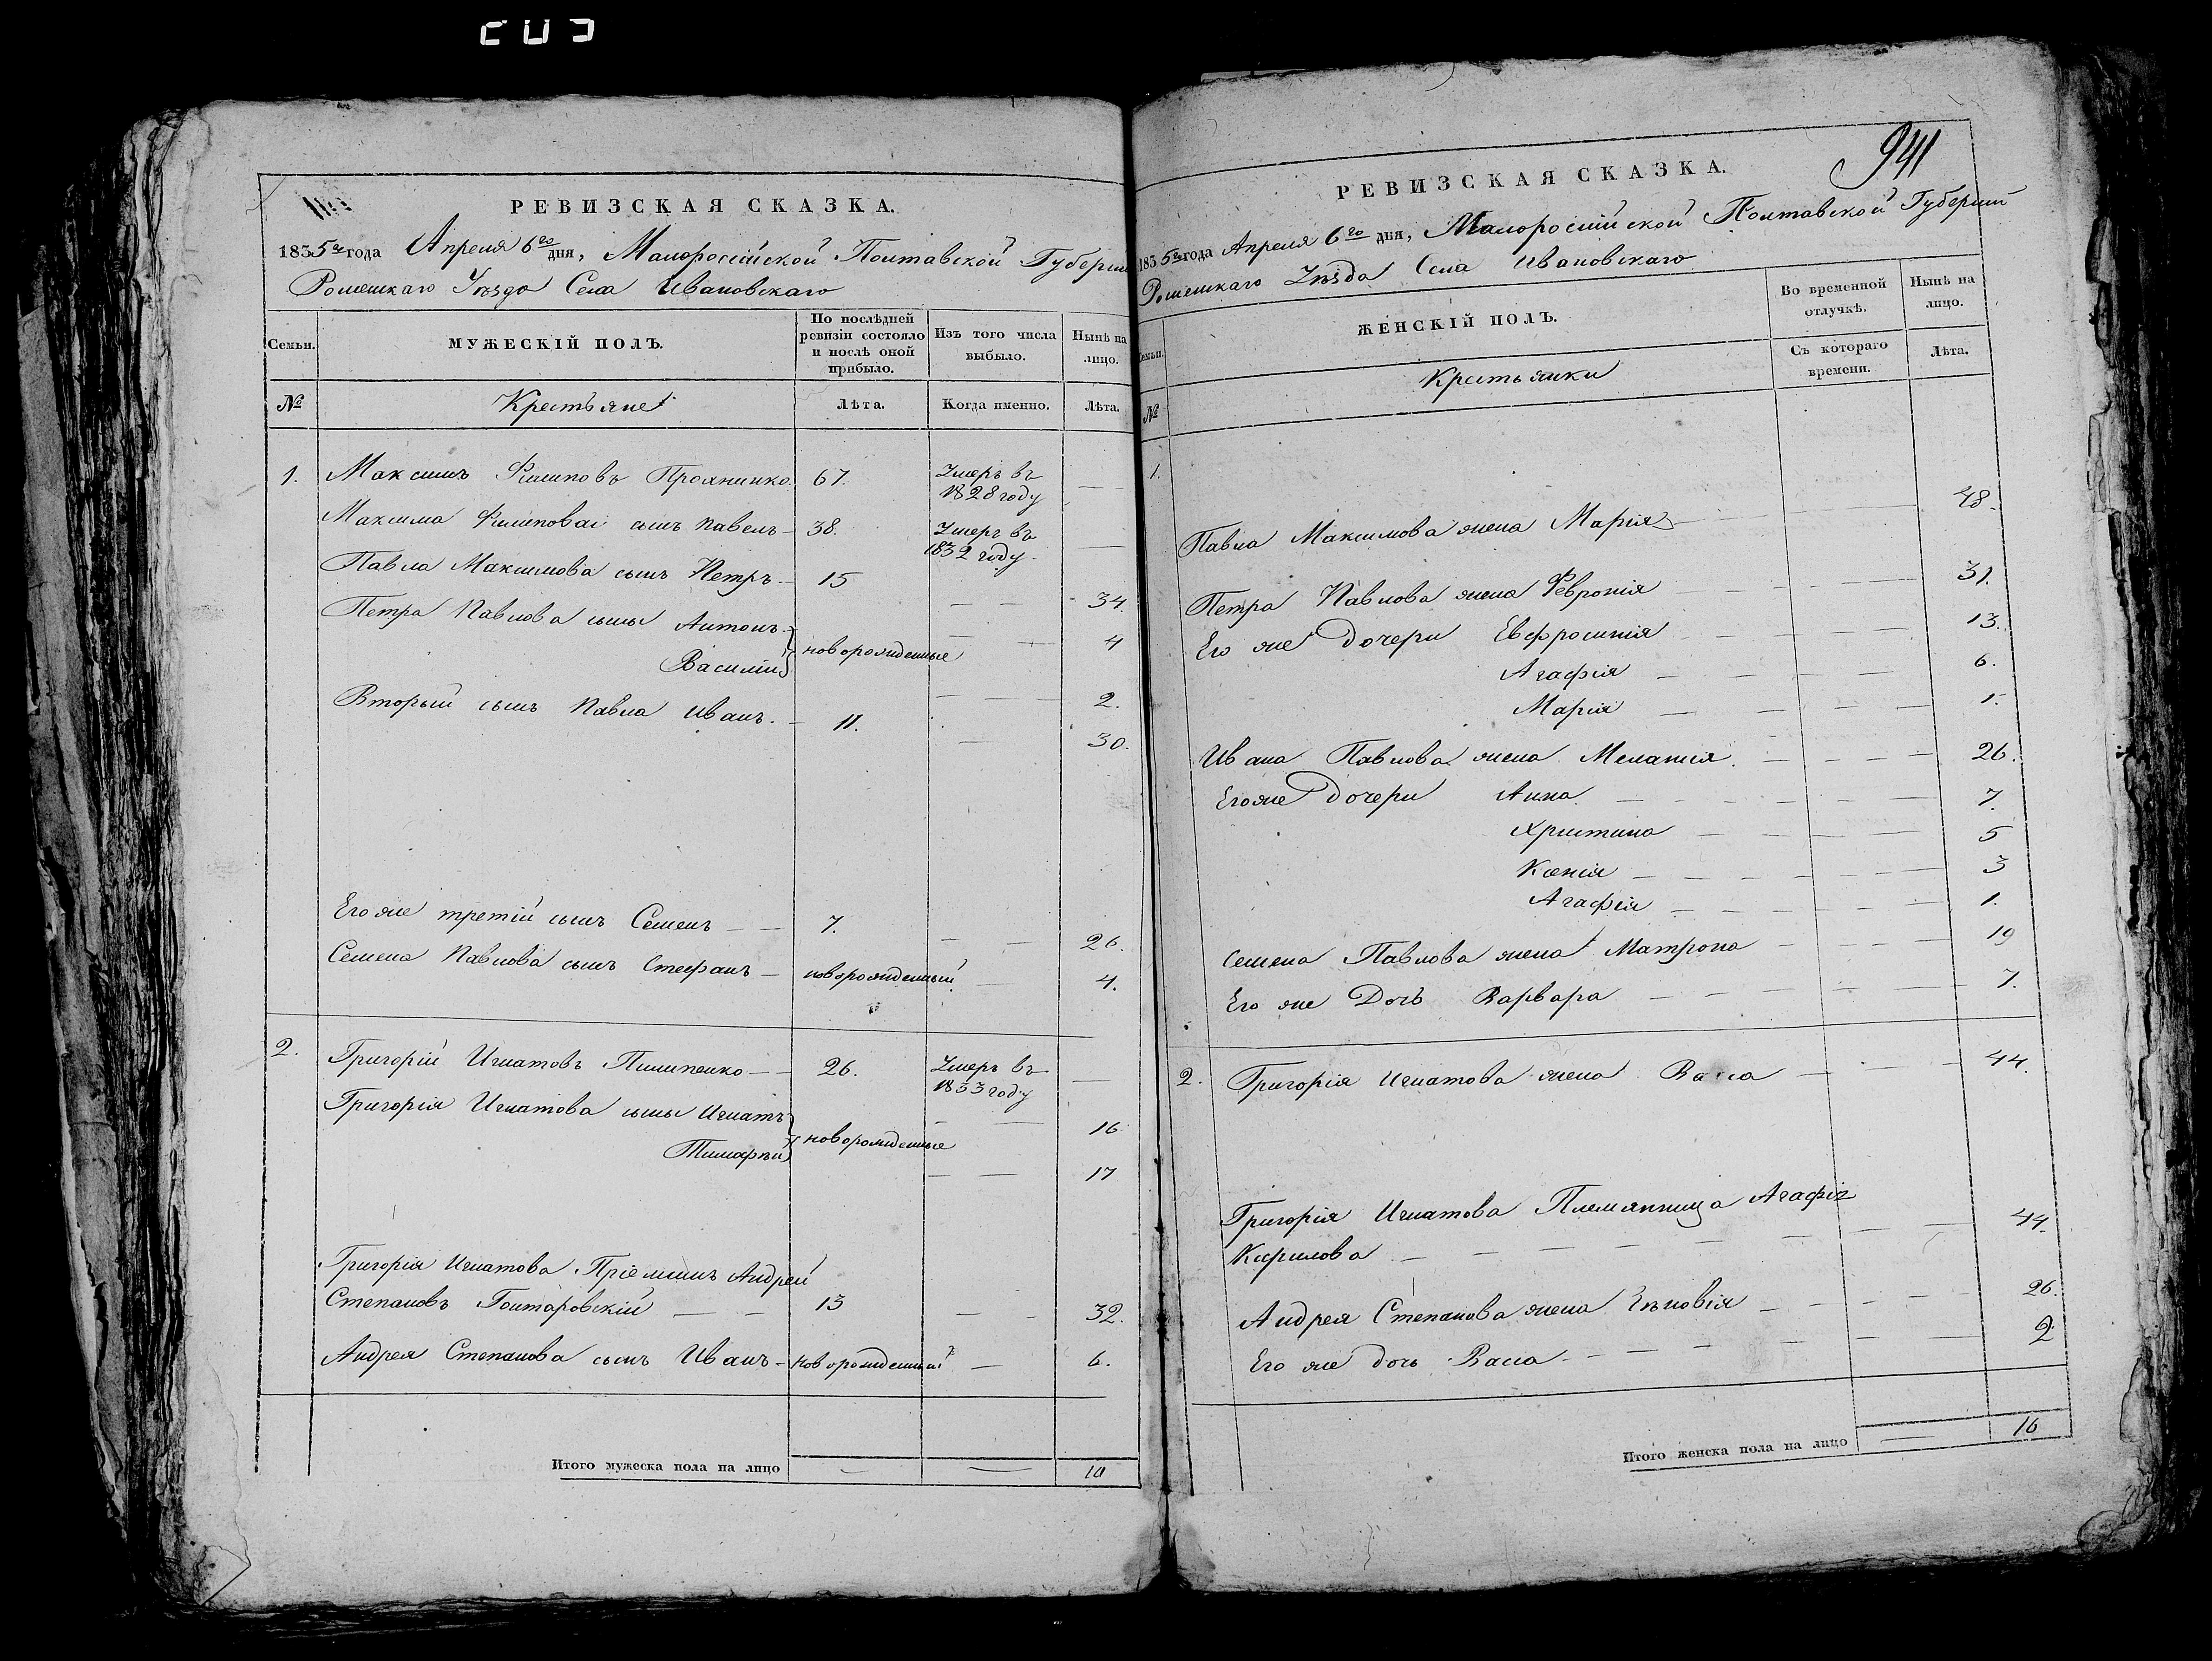 203
РЕВИЗСКАЯ СКАЗКА.
1835го года Апреля 6го дня, Малоросiйской Полтавской Губернiи
Роменскаго Уѣзда Села Ивановскаго
Семьи.
МУЖЕСКIЙ ПОЛЪ.
По послѣдней ревизiи состояло и послѣ оной прибыло.
Изъ того числа выбыло.
Нынѣ на лицо.
№
Крестьяне
Лѣта.
Когда именно.
Лѣта.
1. Максимъ Филиповъ 67. Умеръ въ 1828 году —
Максима Филипова сынъ Павелъ — 38. Умеръ въ 1832 году —
Павла Максимова сынъ Петръ — 15 — — 34.
Петра Павлова сыны Антонъ — 4
Василiй новорожденные — 2.
Вторый сынъ Павла Иванъ. — 11. — 30.
Его же третiй сынъ Семенъ — — 7. — — 26.
Семена Павлова сынъ Стефанъ — новорожденный — 4.
2. Григорiй Игнатовъ Пилипенко — — 26. Умеръ въ 1833 году —
Григорiя Игнатова сыны Игнатъ — — 16
Тимофѣй новорожденные — — 17
Григорiя Игнатова Прiемышъ Андрей
Степановъ Гонтаровскiй — — 13 — 32.
Андрея Степанова сынъ Иванъ — новорожденный — 6.
Итого мужеска пола на лицо — — 10
941
РЕВИЗСКАЯ СКАЗКА.
1835го года Апреля 6го дня, Малоросiйской Полтавской Губернiи
Роменскаго Уѣзда Села Ивановскаго
Семьи.
ЖЕНСКIЙ ПОЛЪ.
Во временной отлучкѣ.
Нынѣ на лицо.
Съ котораго времени.
Лѣта.
№
Крестьянки
1.
Павла Максимова жена Марiя — 48.
Петра Павлова жена Феврония — 31.
Его же дочери Евфросинiя — 13.
Агафiя — 6.
Марiя — 1.
Ивана Павлова жена Меланiя. — 26.
Его же дочери Анна — 7.
Христина — 5
Ксенiя — 3
Агафiя — 1.
Семена Павлова жена Матрона — 19
Его же Дочь Варвара — 7.
2. Григорiя Игнатова жена Васса — 44.
Григорiя Игнатова Племянница Агафiя
Кирилова — 44.
Андрея Степанова жена — 26.
Его же дочь Васса — 2
Итого женска пола на лицо — 16